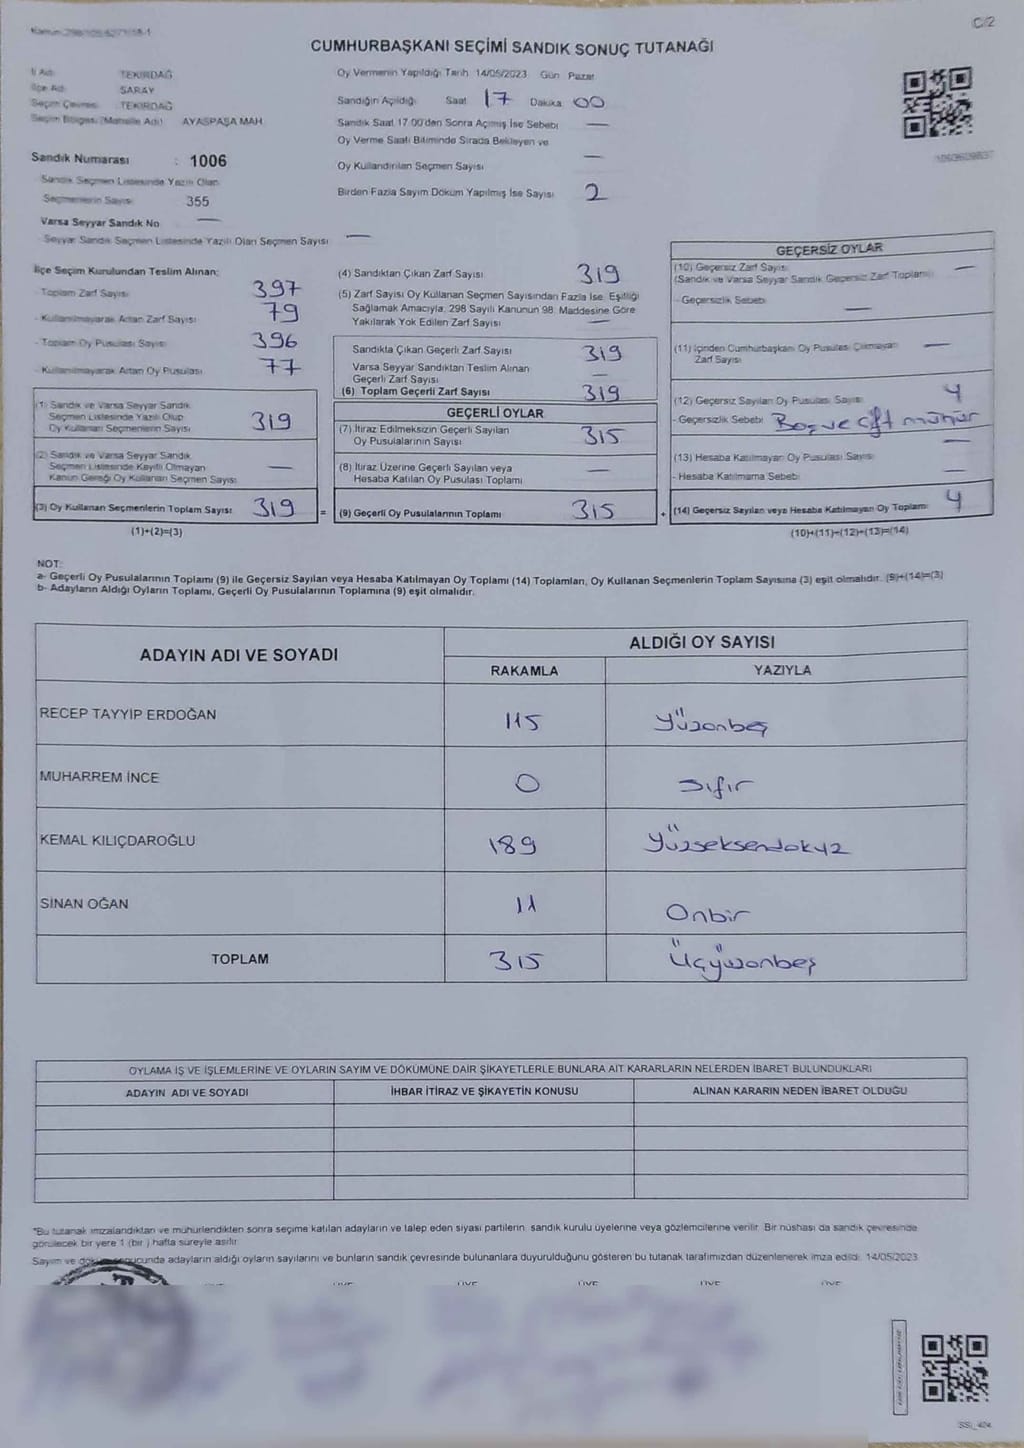 C/2
CUMHURBAŞKANI SEÇİMİ SANDIK SONUÇ TUTANAĞI
İl Adı TEKİRDAĞ
İlçe Adı SARAY
Seçim Çevresi TEKİRDAĞ
Seçim Bölgesi (Mahalle Adı) AYASPAŞA MAH.
Sandık Numarası : 1006
Sandık Seçmen Listesinde Yazılı Olan
Seçmenlerin Sayısı 355
Varsa Seyyar Sandık No —
Seyyar Sandık Seçmen Listesinde Yazılı Olan Seçmen Sayısı —
Oy Vermenin Yapıldığı Tarih 14/05/2023 Gün Pazar
Sandığın Açıldığı Saat 17 Dakika 00
Sandık Saat 17.00'den Sonra Açılmış İse Sebebi —
Oy Verme Saati Bitiminde Sırada Bekleyen ve
Oy Kullandırılan Seçmen Sayısı —
Birden Fazla Sayım Döküm Yapılmış İse Sayısı 2
İlçe Seçim Kurulundan Teslim Alınan;
- Toplam Zarf Sayısı 397
- Kullanılmayarak Artan Zarf Sayısı 79
- Toplam Oy Pusulası Sayısı 396
- Kullanılmayarak Artan Oy Pusulası 77
(1) Sandık ve Varsa Seyyar Sandık
Seçmen Listesinde Yazılı Olup
Oy Kullanan Seçmenlerin Sayısı 319
(2) Sandık ve Varsa Seyyar Sandık
Seçmen Listesinde Kayıtlı Olmayan
Kanun Gereği Oy Kullanan Seçmen Sayısı —
(3) Oy Kullanan Seçmenlerin Toplam Sayısı 319 =
(1)+(2)=(3)
(4) Sandıktan Çıkan Zarf Sayısı 319
(5) Zarf Sayısı Oy Kullanan Seçmen Sayısından Fazla İse, Eşitliği
Sağlamak Amacıyla, 298 Sayılı Kanunun 98. Maddesine Göre
Yakılarak Yok Edilen Zarf Sayısı —
Sandıkta Çıkan Geçerli Zarf Sayısı 319
Varsa Seyyar Sandıktan Teslim Alınan
Geçerli Zarf Sayısı —
(6) Toplam Geçerli Zarf Sayısı 319
GEÇERLİ OYLAR
(7) İtiraz Edilmeksizin Geçerli Sayılan
Oy Pusulalarının Sayısı 315
(8) İtiraz Üzerine Geçerli Sayılan veya
Hesaba Katılan Oy Pusulası Toplamı —
(9) Geçerli Oy Pusulalarının Toplamı 315 +
GEÇERSİZ OYLAR
(10) Geçersiz Zarf Sayısı
(Sandık ve Varsa Seyyar Sandık Geçersiz Zarf Toplamı) —
- Geçersizlik Sebebi —
(11) İçinden Cumhurbaşkanı Oy Pusulası Çıkmayan
Zarf Sayısı —
(12) Geçersiz Sayılan Oy Pusulası Sayısı 4
- Geçersizlik Sebebi Boş ve çift mühür
(13) Hesaba Katılmayan Oy Pusulası Sayısı —
- Hesaba Katılmama Sebebi —
(14) Geçersiz Sayılan veya Hesaba Katılmayan Oy Toplamı 4
(10)+(11)+(12)+(13)=(14)
NOT:
a- Geçerli Oy Pusulalarının Toplamı (9) ile Geçersiz Sayılan veya Hesaba Katılmayan Oy Toplamı (14) Toplamları, Oy Kullanan Seçmenlerin Toplam Sayısına (3) eşit olmalıdır. (9)+(14)=(3)
b- Adayların Aldığı Oyların Toplamı, Geçerli Oy Pusulalarının Toplamına (9) eşit olmalıdır.
ADAYIN ADI VE SOYADI
ALDIĞI OY SAYISI
RAKAMLA YAZIYLA
RECEP TAYYİP ERDOĞAN 115 Yüzonbeş
MUHARREM İNCE 0 Sıfır
KEMAL KILIÇDAROĞLU 189 Yüzseksendokuz
SİNAN OĞAN 11 Onbir
TOPLAM 315 Üçyüzonbeş
OYLAMA İŞ VE İŞLEMLERİNE VE OYLARIN SAYIM VE DÖKÜMÜNE DAİR ŞİKAYETLERLE BUNLARA AİT KARARLARIN NELERDEN İBARET BULUNDUKLARI
ADAYIN ADI VE SOYADI İHBAR İTİRAZ VE ŞİKAYETİN KONUSU ALINAN KARARIN NEDEN İBARET OLDUĞU
*Bu tutanak imzalandıktan ve mühürlendikten sonra seçime katılan adayların ve talep eden siyasi partilerin sandık kurulu üyelerine veya gözlemcilerine verilir. Bir nüshası da sandık çevresinde
görülecek bir yere 1 (bir ) hafta süreyle asılır.
Sayım ve döküm sonucunda adayların aldığı oyların sayılarını ve bunların sandık çevresinde bulunanlara duyurulduğunu gösteren bu tutanak tarafımızdan düzenlenerek imza edildi. 14/05/2023
ÜYE ÜYE ÜYE ÜYE